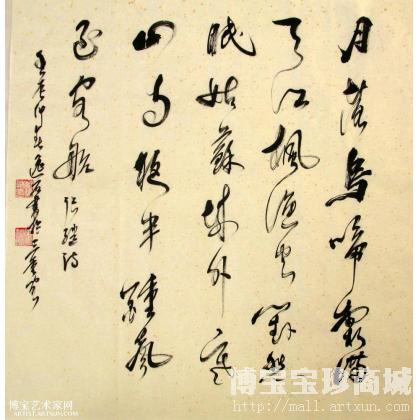 月落烏啼霜滿
天江楓漁火對愁
眠姑蘇城外寒
山寺夜半鐘聲
到客船 張繼詩
仲春
博宝艺术家网
ARTIST.ARTXUN.COM
博宝宝珍商城
http://mall.artxun.com